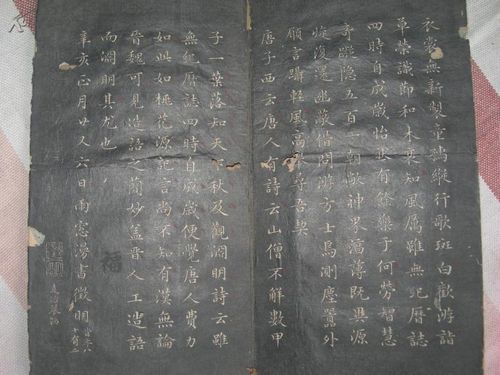 衣裳無新製童孺縱行歌班白歡游詣
草榮識節和木衰知風厲雖無紀曆誌
四時自成歲怡然有餘樂于何勞智慧
奇蹤隱五百一朝敞神界淳薄既異源
旋復還幽蔽借問游方士焉測塵囂外
願言躡輕風高舉尋吾契
唐子西云唐人有詩云山僧不解數甲
子一葉落知天下秋及觀淵明詩云雖
無紀曆誌四時自成歲便覺唐人費力
如此如桃花源記言尚不知有漢無論
晉魏可見造語之簡妙蓋晉人工造語
而淵明其尤也
福
辛亥正月廿又六日雨窗漫書徵明
時年八
十有二